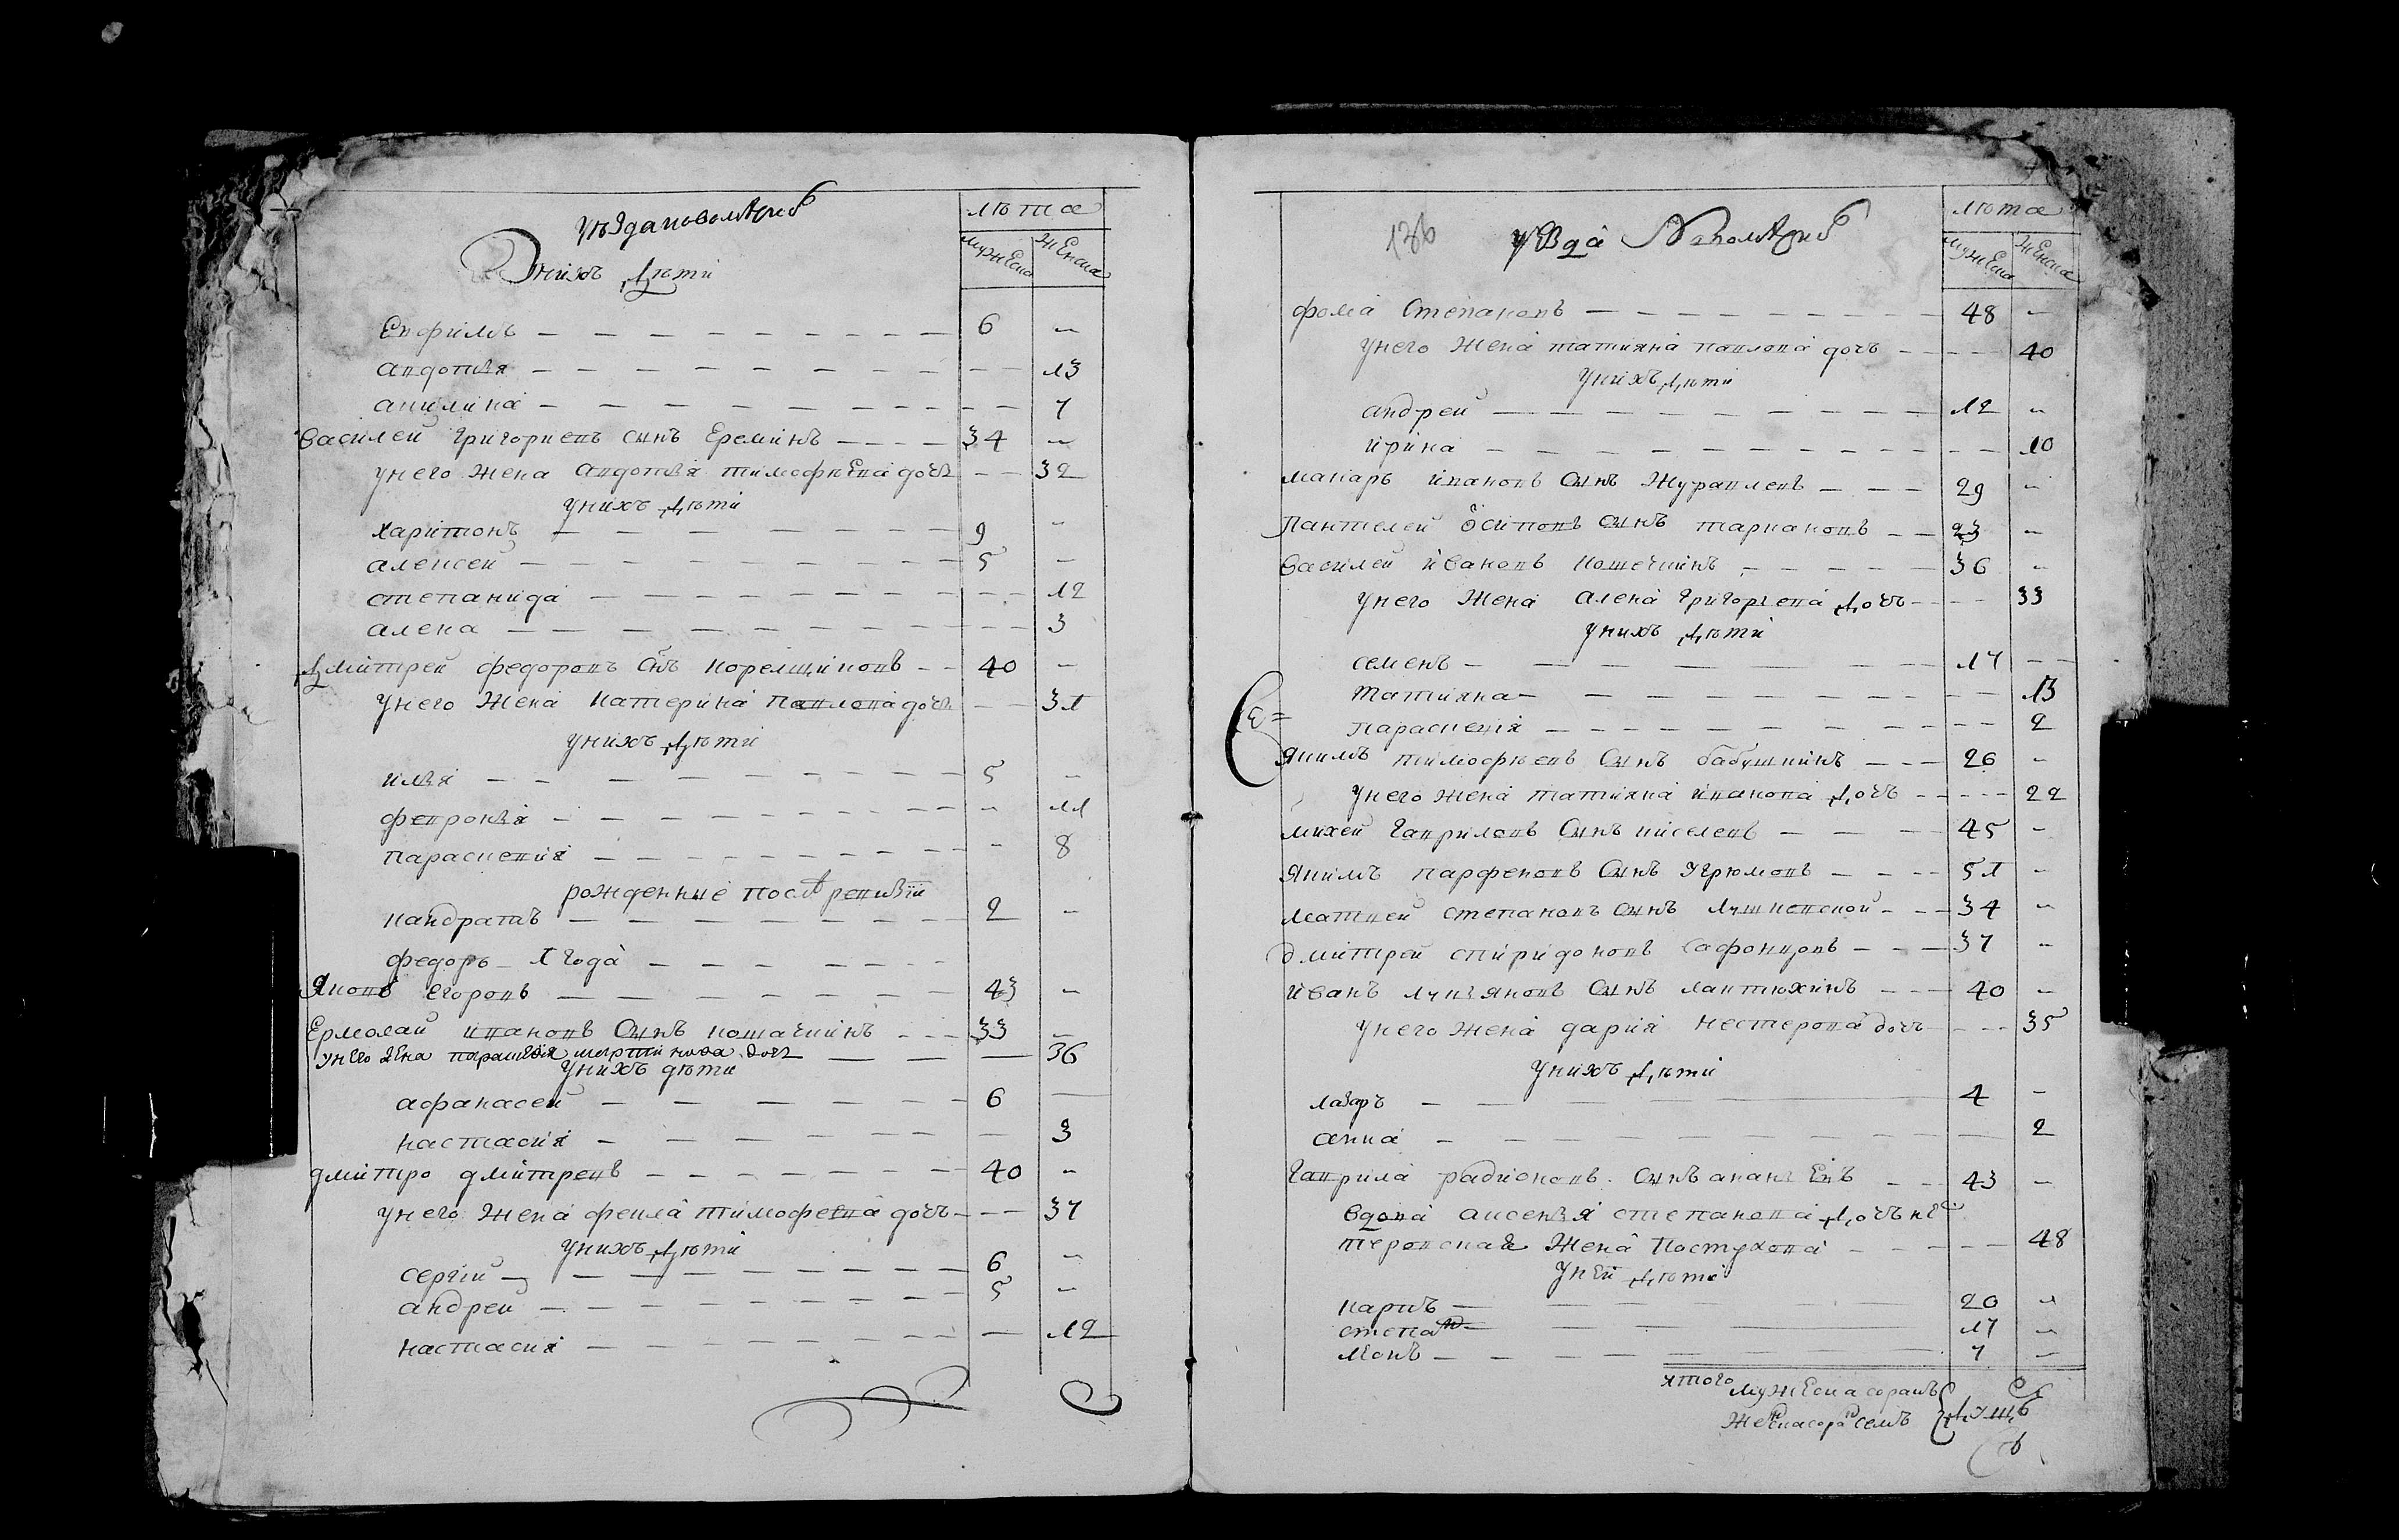 лѣта
мужеска женска
У нихъ дѣти
Евфимъ 6
авдотья 13
акилина 7
василей григорьевъ сынъ Ереминъ 34
унего жена авдотья тимофѣева дочь 32
унихъ дѣти
харитонъ 9
алексей 5
степанида 12
алена 3
дмитрей федоровъ снъ корелщиковъ 40
унего жена катерина павлова дочь 31
унихъ дѣти
илья 5
февронья 11
парасковия 8
рожденные послѣ ревизiи
кандратъ 2
федоръ 1 года
Яковъ егоровъ 43
Ермолай ивановъ сынъ кошачкинъ 33
унего жена дочь 36
Унихъ дѣти
афанасей 6
настасия 3
дмитро дмитревъ 40
унего жена фекла тимофеева дочь 37
унихъ дѣти
сергiй 6
андрей 5
настасия 12
136
лѣта
мужеска женска
фома степановъ 48
унего жена татияна павлова дочь 40
Унихъ дѣти
андрей 12
ирина 10
макаръ ивановъ сынъ журавлевъ 29
Пантелей осиповъ сынъ таркановъ 23
василей ивановъ кошечкинъ 36
унего жена алена григорьева дочь 33
унихъ дѣти
семенъ 17
татияна 13
парасковiя 2
Якимъ тимофѣевъ сынъ бабушкинъ 26
Унего жена татияна иванова дочь 22
михей гавриловъ сынъ киселевъ 45
Якимъ парфеновъ сынъ Угрюмовъ 51
матвей степановъ сынъ 34
дмитрей спиридоновъ сафонцовъ 37
иванъ лукьяновъ сынъ лаптюхинъ 40
унего жена дария нестерова дочь 35
Унихъ дѣти
лазаръ 4
анна 2
гаврила радионовъ сынъ 43
вдова аксенья степанова дочь не
теровская жена Постухова 48
Уней дѣти
карпъ 20
степанъ 17
леонъ 7
итого мужеска сорокъ
женска сорокъ семь